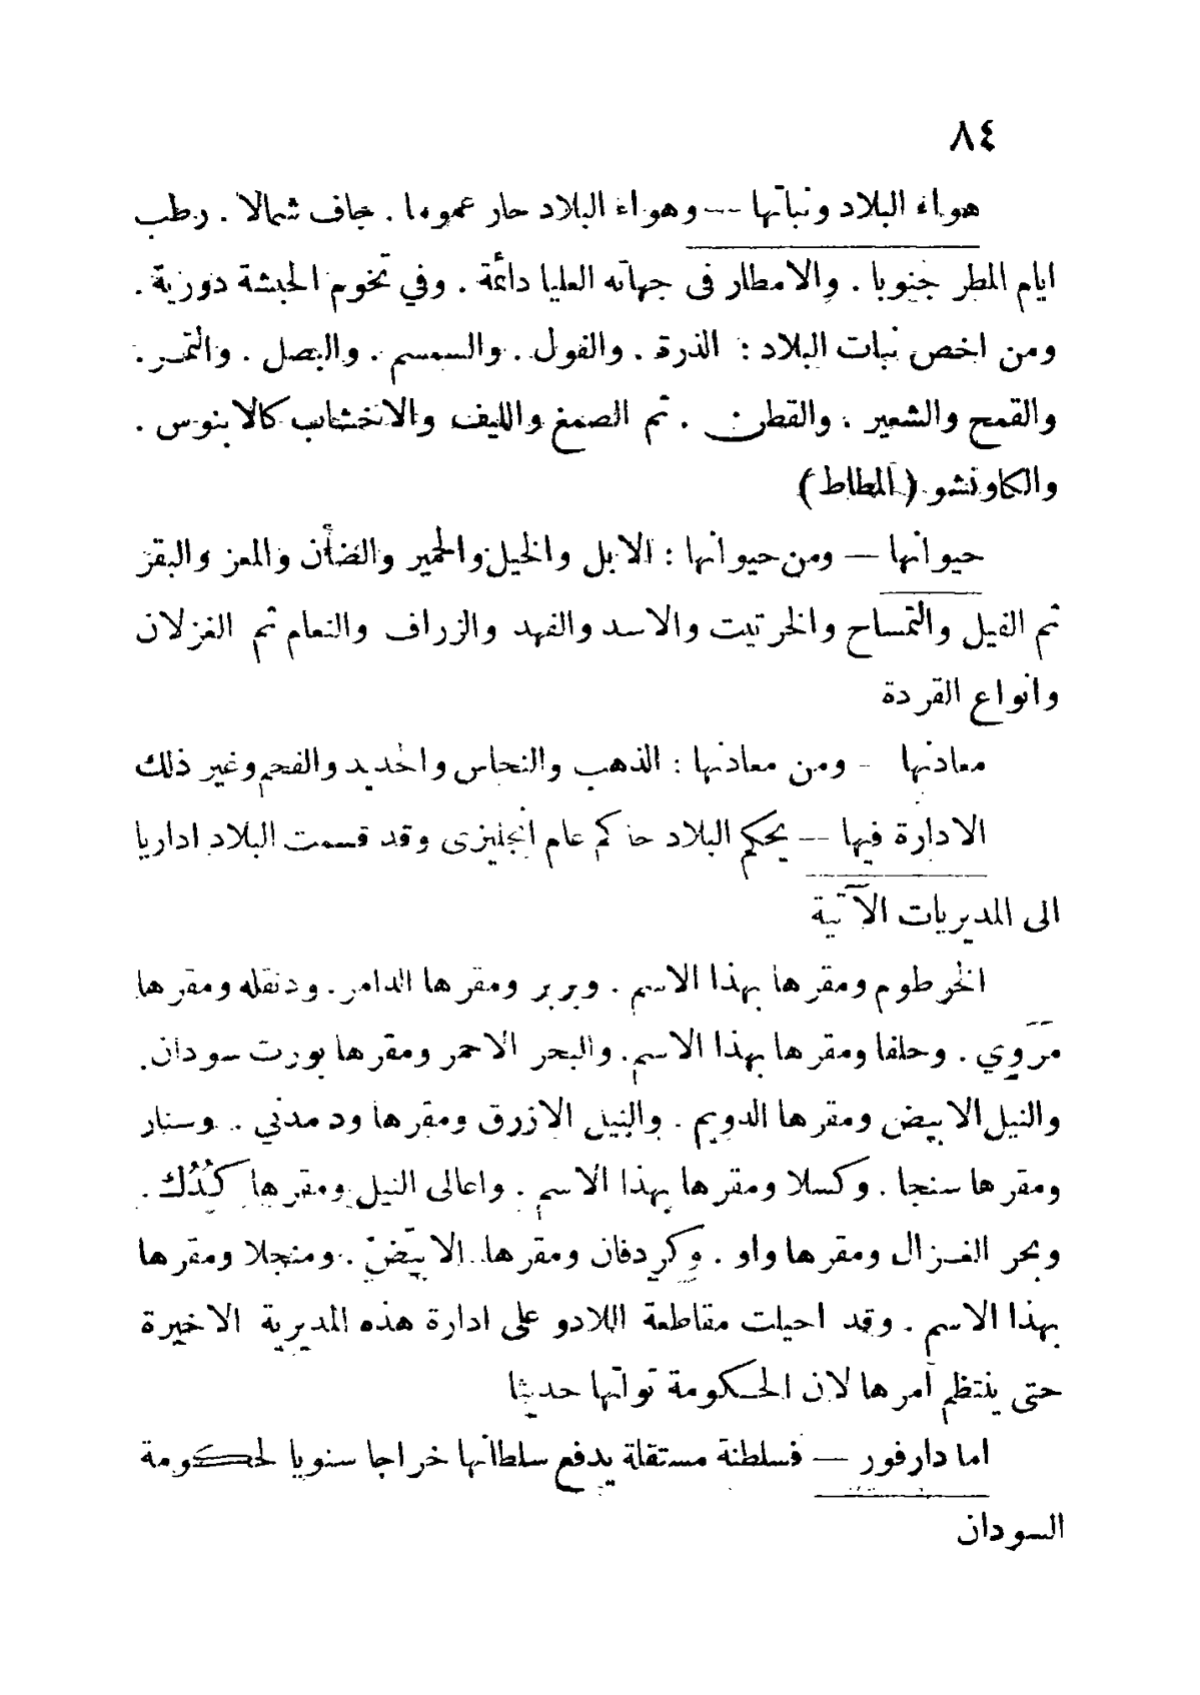 ٨٤
هواء البلاد ونباتها — وهواء البلاد حار عموما . جاف شمالا . رطب
ايام المطر جنوبا . والامطار فى جهاته العليا دائمة . وفي تخوم الحبشة دورية .
ومن اخص نبات البلاد : الذرة . والفول . والسمسم . والبصل . والتمر .
والقمح والشعير . والقطن . ثم الصمغ والليف والاخشاب كالابنوس .
والكاوتشو (المطاط)
حيوانها — ومن حيوانها : الابل والخيل والحمير والضأن والمعز والبقر
ثم الفيل والتمساح والخرتيت والاسد والفهد والزراف والنعام ثم الغزلان
وانواع القردة
معادنها - ومن معادنها : الذهب والنحاس والحديد والفحم وغير ذلك
الادارة فيها — يحكم البلاد حاكم عام انجليزى وقد قسمت البلاد اداريا
الى المديريات الآتية
الخرطوم ومقرها بهذا الاسم . وبربر ومقرها الدامر . ودنقله ومقرها
مَرَوِي . وحلفا ومقرها بهذا الاسم . والبحر الاحمر ومقرها بورت سودان.
والنيل الابيض ومقرها الدويم . والنيل الازرق ومقرها ود مدني . وسنار
ومقرها سنجا . وكسلا ومقرها بهذا الاسم . واعالى النيل ومقرها كُدُك .
وبحر الغزال ومقرها واو . وكردفان ومقرها الابَيّض . ومنجلا ومقرها
بهذا الاسم . وقد احيلت مقاطعة اللادو على ادارة هذه المديرية الاخيرة
حتى ينتظم أمرها لان الحكومة تولتها حديثا
اما دارفور — فسلطنة مستقلة يدفع سلطانها خراجا سنويا لحكومة
السودان